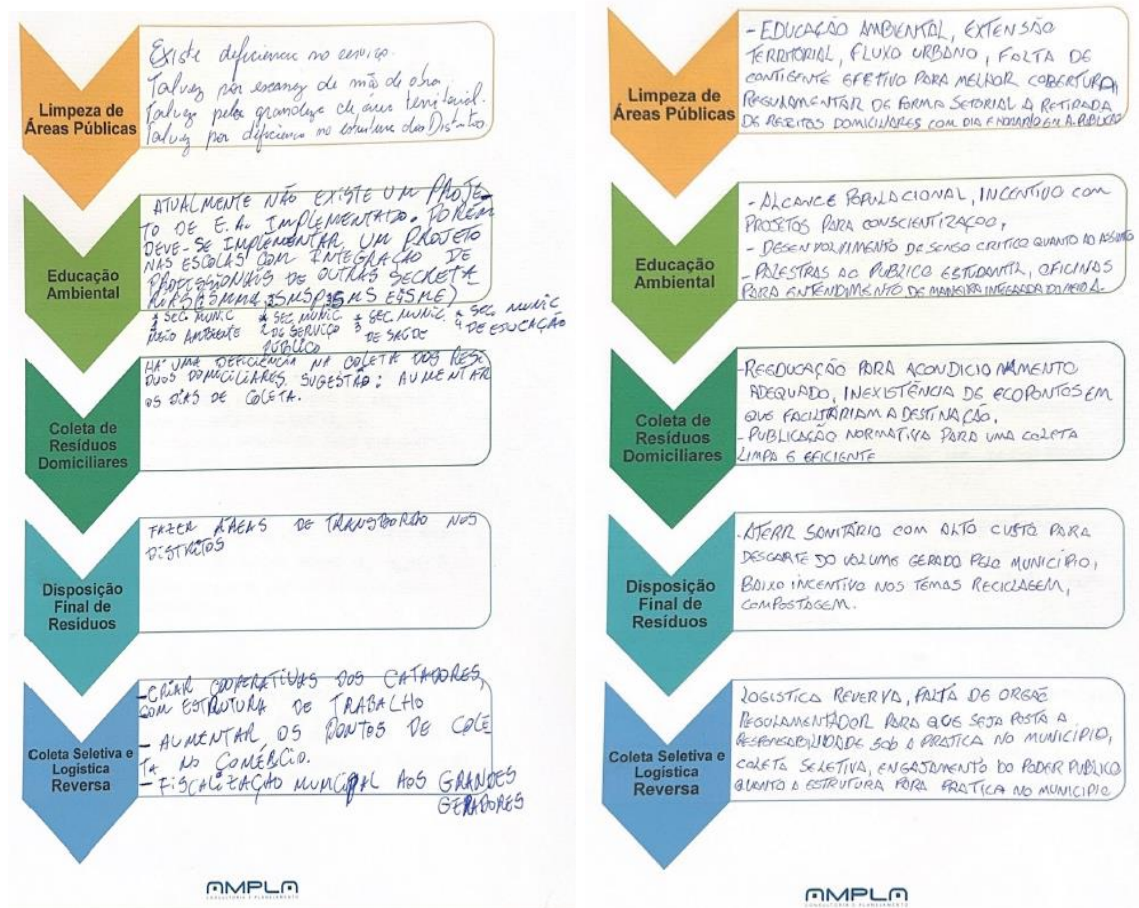 Limpeza de
Áreas Públicas
Existe deficiencia no serviço.
Talvez por escassez de mão de obra.
Talvez pela grandeza de área territorial.
Talvez por deficiencia na estrutura dos Distritos
Educação
Ambiental
ATUALMENTE NÃO EXISTE UM PROJE-
TO DE E.A. IMPLEMENTADO. PORÉM
DEVE-SE IMPLEMENTAR UM PROJETO
NAS ESCOLAS COM INTEGRAÇÃO DE
PROFISSIONAIS DE OUTRAS SECRETA
RIAS (SMMA, SMSP, SMS E SME)
1 SEC. MUNIC * SEC. MUNIC * SEC MUNIC. * SEC. MUNIC
MEIO AMBIENTE 2 DE SERVIÇO 3 DE SAÚDE 4 DE EDUCAÇÃO
PÚBLICO
Coleta de
Resíduos
Domiciliares
HÁ UMA DEFICIÊNCIA NA COLETA DOS RESÍ
DUOS DOMICILIARES. SUGESTÃO: AUMENTAR
OS DIAS DE COLETA.
Disposição
Final de
Resíduos
FAZER ÁREAS DE TRANSBORDO NOS
DISTRITOS
Coleta Seletiva e
Logistica
Reversa
- CRIAR COOPERATIVAS DOS CATADORES,
COM ESTRUTURA DE TRABALHO
- AUMENTAR OS PONTOS DE COLE
TA NO COMÉRCIO.
- FISCALIZAÇÃO MUNICIPAL AOS GRANDES
GERADORES
AMPLA
CONSULTORIA E PLANEJAMENTO
Limpeza de
Áreas Públicas
- EDUCAÇÃO AMBIENTAL, EXTENSÃO
TERRITORIAL, FLUXO URBANO, FALTA DE
CONTIGENTE EFETIVO PARA MELHOR COBERTURA,
REGULAMENTAR DE FORMA SETORIAL A RETIRADA
DE REJEITOS DOMICILIARES COM DIA E HORÁRIO EM A. PÚBLICAS
Educação
Ambiental
- ALCANCE POPULACIONAL, INCENTIVO COM
PROJETOS PARA CONSCIENTIZAÇÃO,
- DESENVOLVIMENTO DE SENSO CRITICO QUANTO AO ASSUNTO
- PALESTRAS AO PUBLICO ESTUDANTIL, OFICINAS
PARA ENTENDIMENTO DE MANEIRA INTEGRADA DO MEIO A.
Coleta de
Resíduos
Domiciliares
- REEDUCAÇÃO PARA ACONDICIONAMENTO
ADEQUADO, INEXISTÊNCIA DE ECOPONTOS EM
QUE FACILITARIAM A DESTINAÇÃO,
- PUBLICAÇÃO NORMATIVA PARA UMA COLETA
LIMPA E EFICIENTE
Disposição
Final de
Resíduos
- ATERR SANITÁRIO COM ALTO CUSTO PARA
DESCARTE DO VOLUME GERADO PELO MUNICÍPIO,
BAIXO INCENTIVO NOS TEMAS RECICLAGEM,
COMPOSTAGEM.
Coleta Seletiva e
Logistica
Reversa
LOGISTICA REVERSA, FALTA DE ORGÃO
REGULAMENTADOR PARA QUE SEJA POSTA A
RESPONSABILIDADE SOB A PRATICA NO MUNICÍPIO,
COLETA SELETIVA, ENGAJAMENTO DO PODER PUBLICO
QUANTO A ESTRUTURA PARA PRATICA NO MUNICIPIO
AMPLA
CONSULTORIA E PLANEJAMENTO